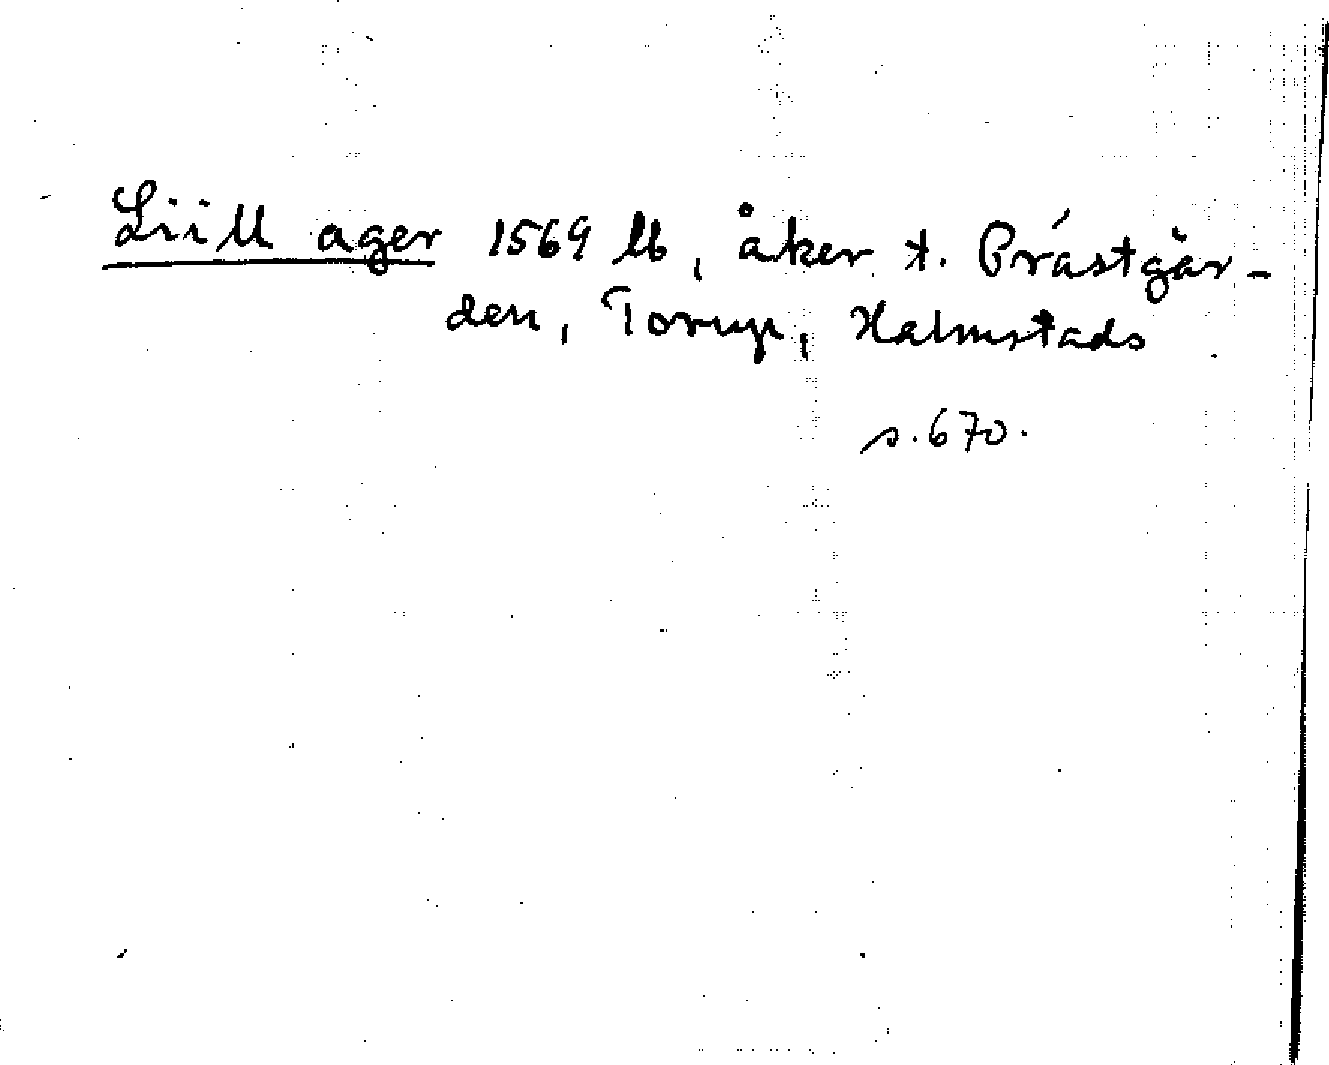 Liill ager 1569 lb, åker t. Prästgår-
den, Torup, Halmstads
s. 670.